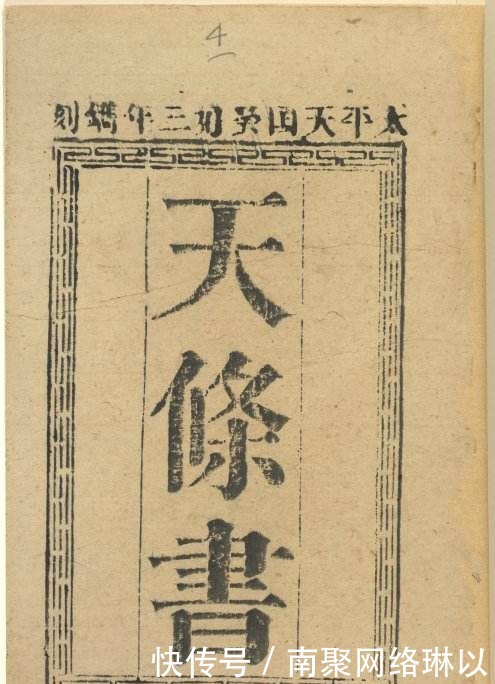 4
太平天囯癸好三年鐫刻
天條書
快传号 / 南聚网络琳以